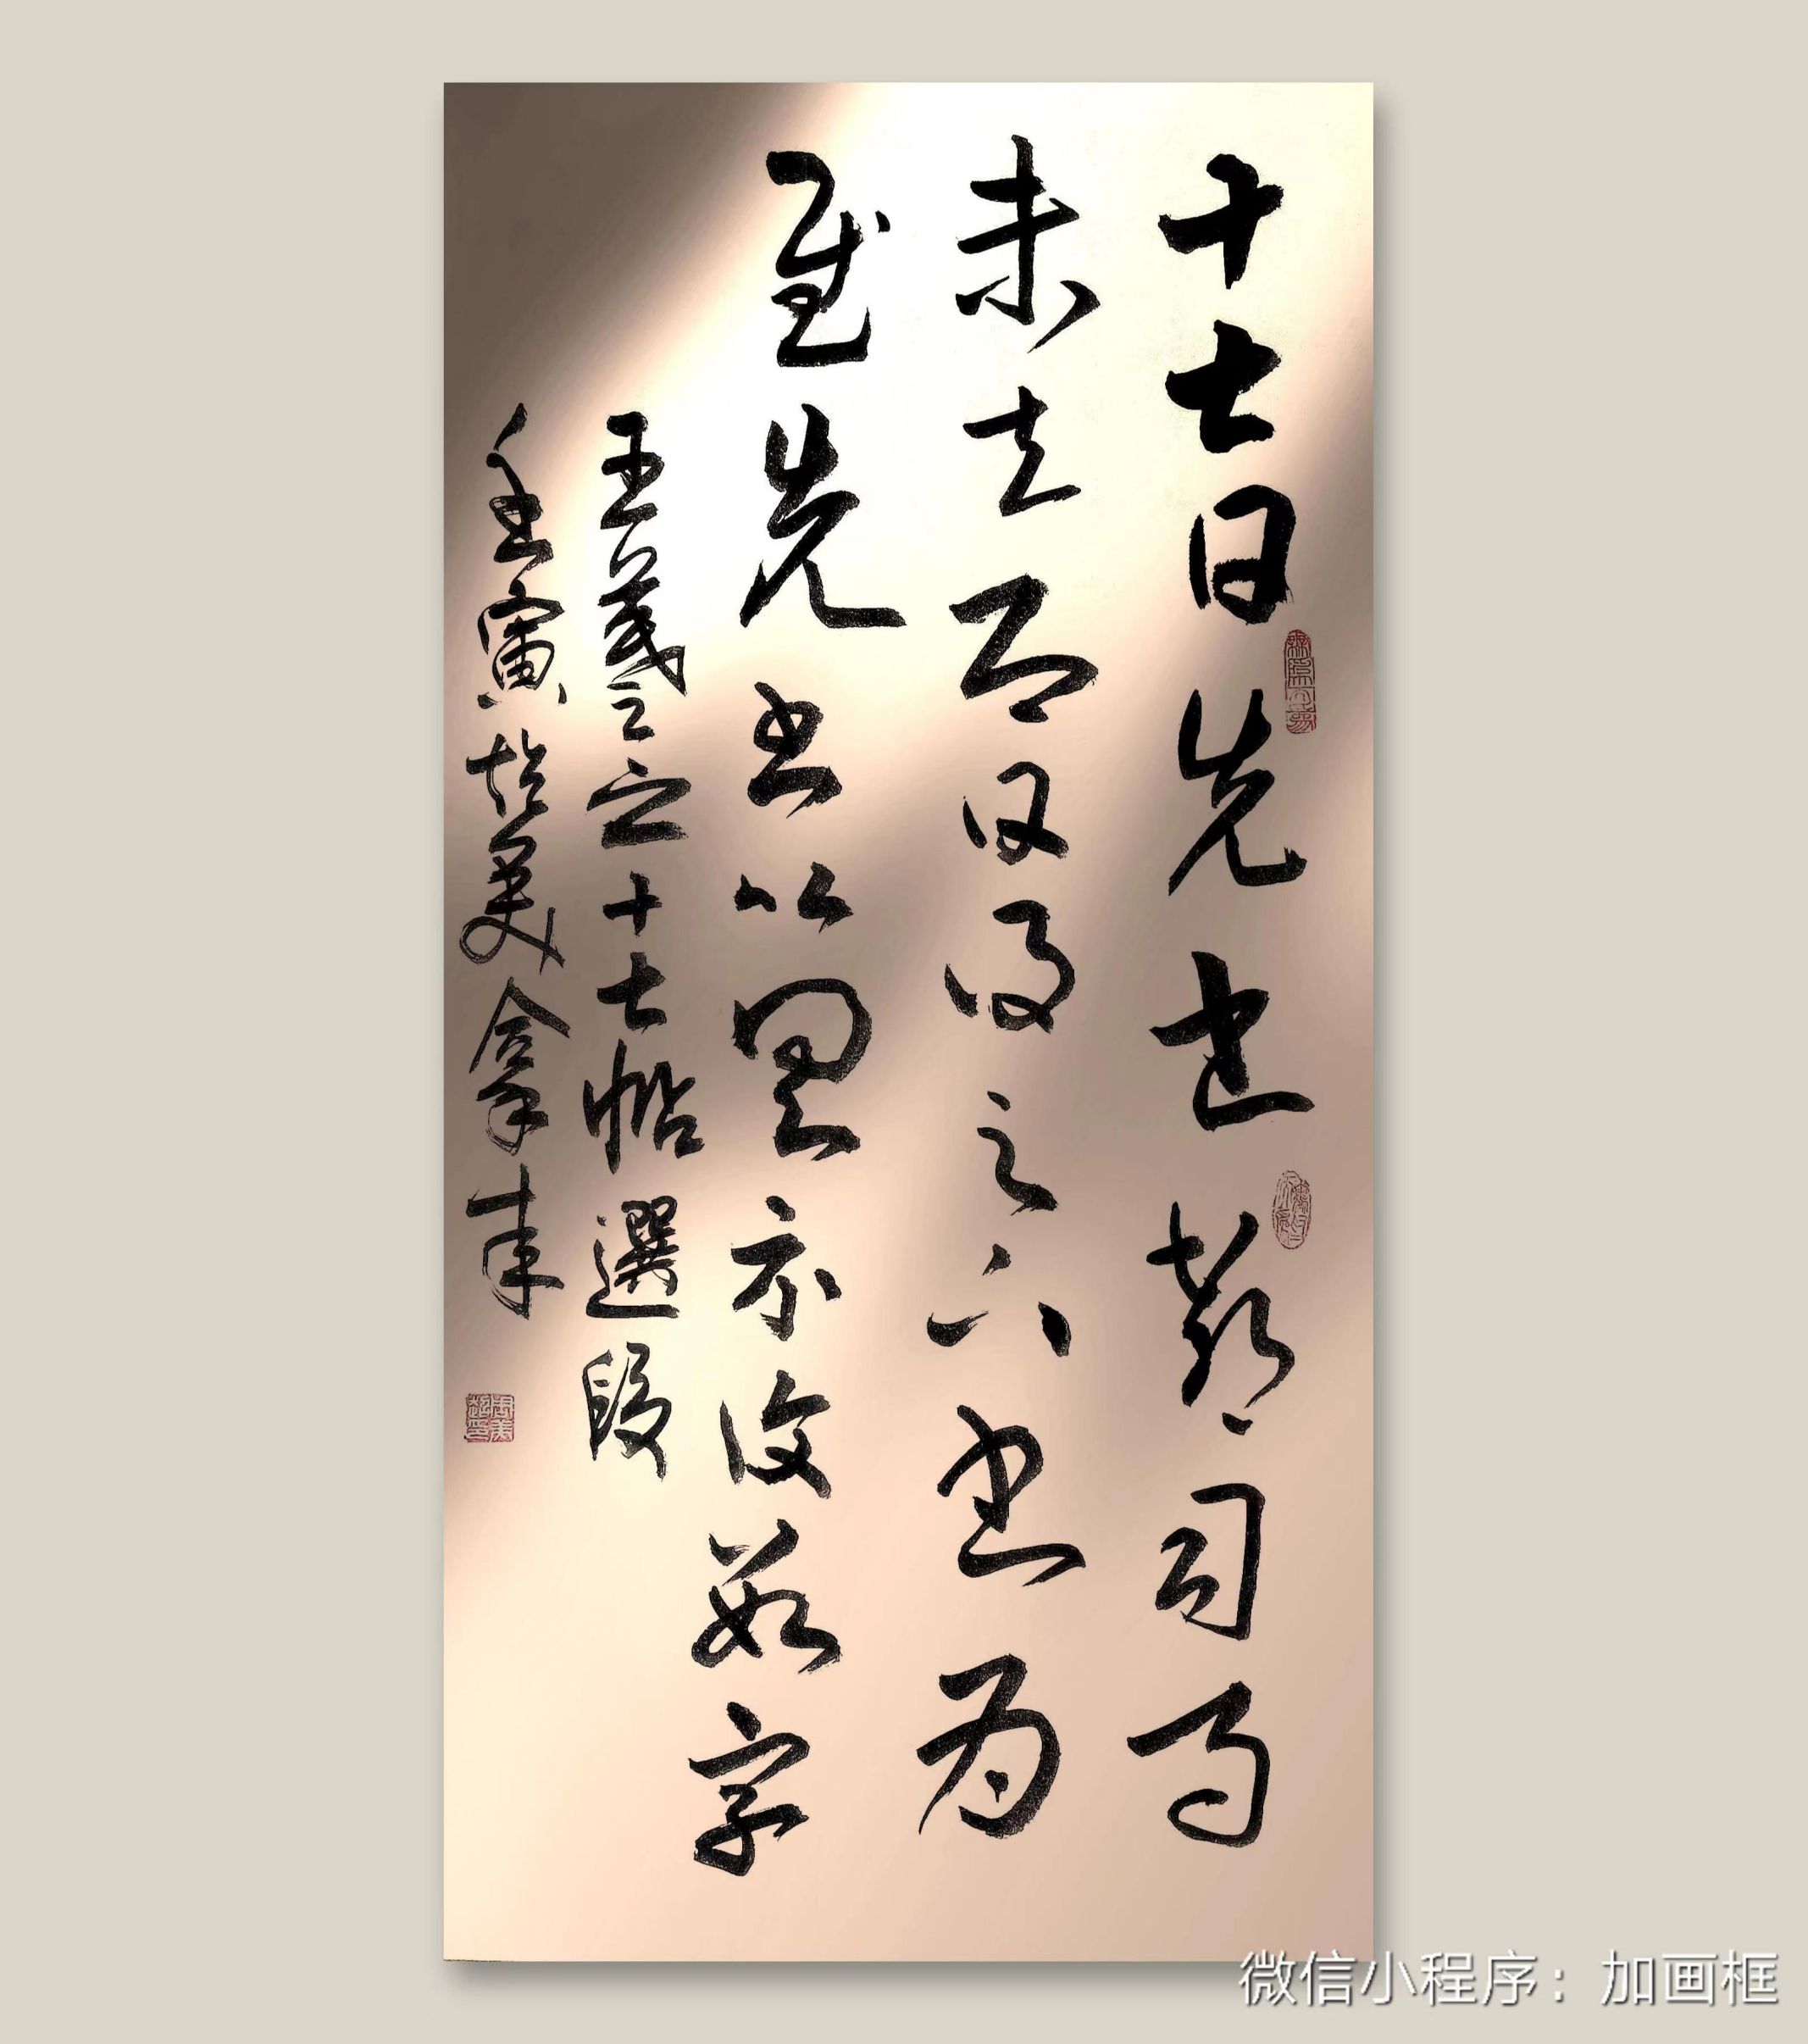 十七日先書郗司馬
未去即日得足下書為
慰先書以具示復數字
王羲之之十七帖選段
壬寅於美拿
微信小程序：加画框